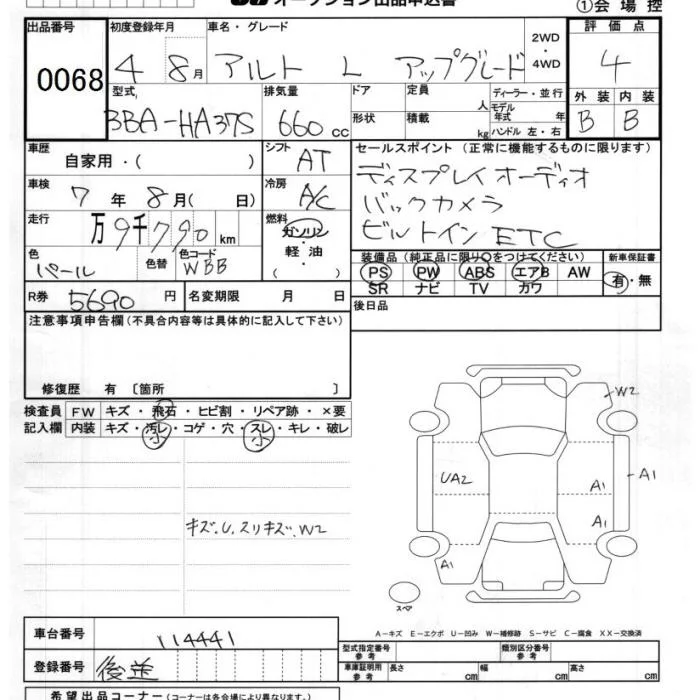 オークション出品申込書
①会場控
出品番号 初度登録年月 車名・グレード 2WD・4WD 評価点
0068 4 8月 アルト L アップグレード 4
型式 排気量 ドア 定員 人 ディーラー・並行 外装 内装
BBA-HA37S 660cc 形状 積載 kg モデル年式 年 ハンドル 左・右 B B
車歴 自家用・( ) シフト AT セールスポイント (正常に機能するものに限ります)
ディスプレイオーディオ
車検 7年8月( 日) 冷房 A/C バックカメラ
走行 万9千790km 燃料 ガソリン・軽油・( ) ビルトインETC
色 パール 色替 色コード WBB
装備品(純正品に限り○をつけてください) 新車保証書
PS PW ABS エアB AW 有・無
SR ナビ TV カワ
R券 5690円 名変期限 月 日 後日品
注意事項申告欄(不具合内容等は具体的に記入して下さい)
修復歴 有 〔箇所 〕
検査員 FW キズ・飛石・ヒビ割・リペア跡・×要
記入欄 内装 キズ・汚レ・コゲ・穴・スレ・キレ・破レ
小 小
キズ.U.スリキズ.W2
W2
UA2 A1 A1
A1
A1
スペア
A－キズ E－エクボ U－凹み W－補修跡 S－サビ C－腐食 XX－交換済
車台番号 114441
型式指定番号 参考 類別区分番号 参考
登録番号 後送
車庫証明用 参考 長さ cm 幅 cm 高さ cm
希望出品コーナー(コーナーは各会場により異なります。)